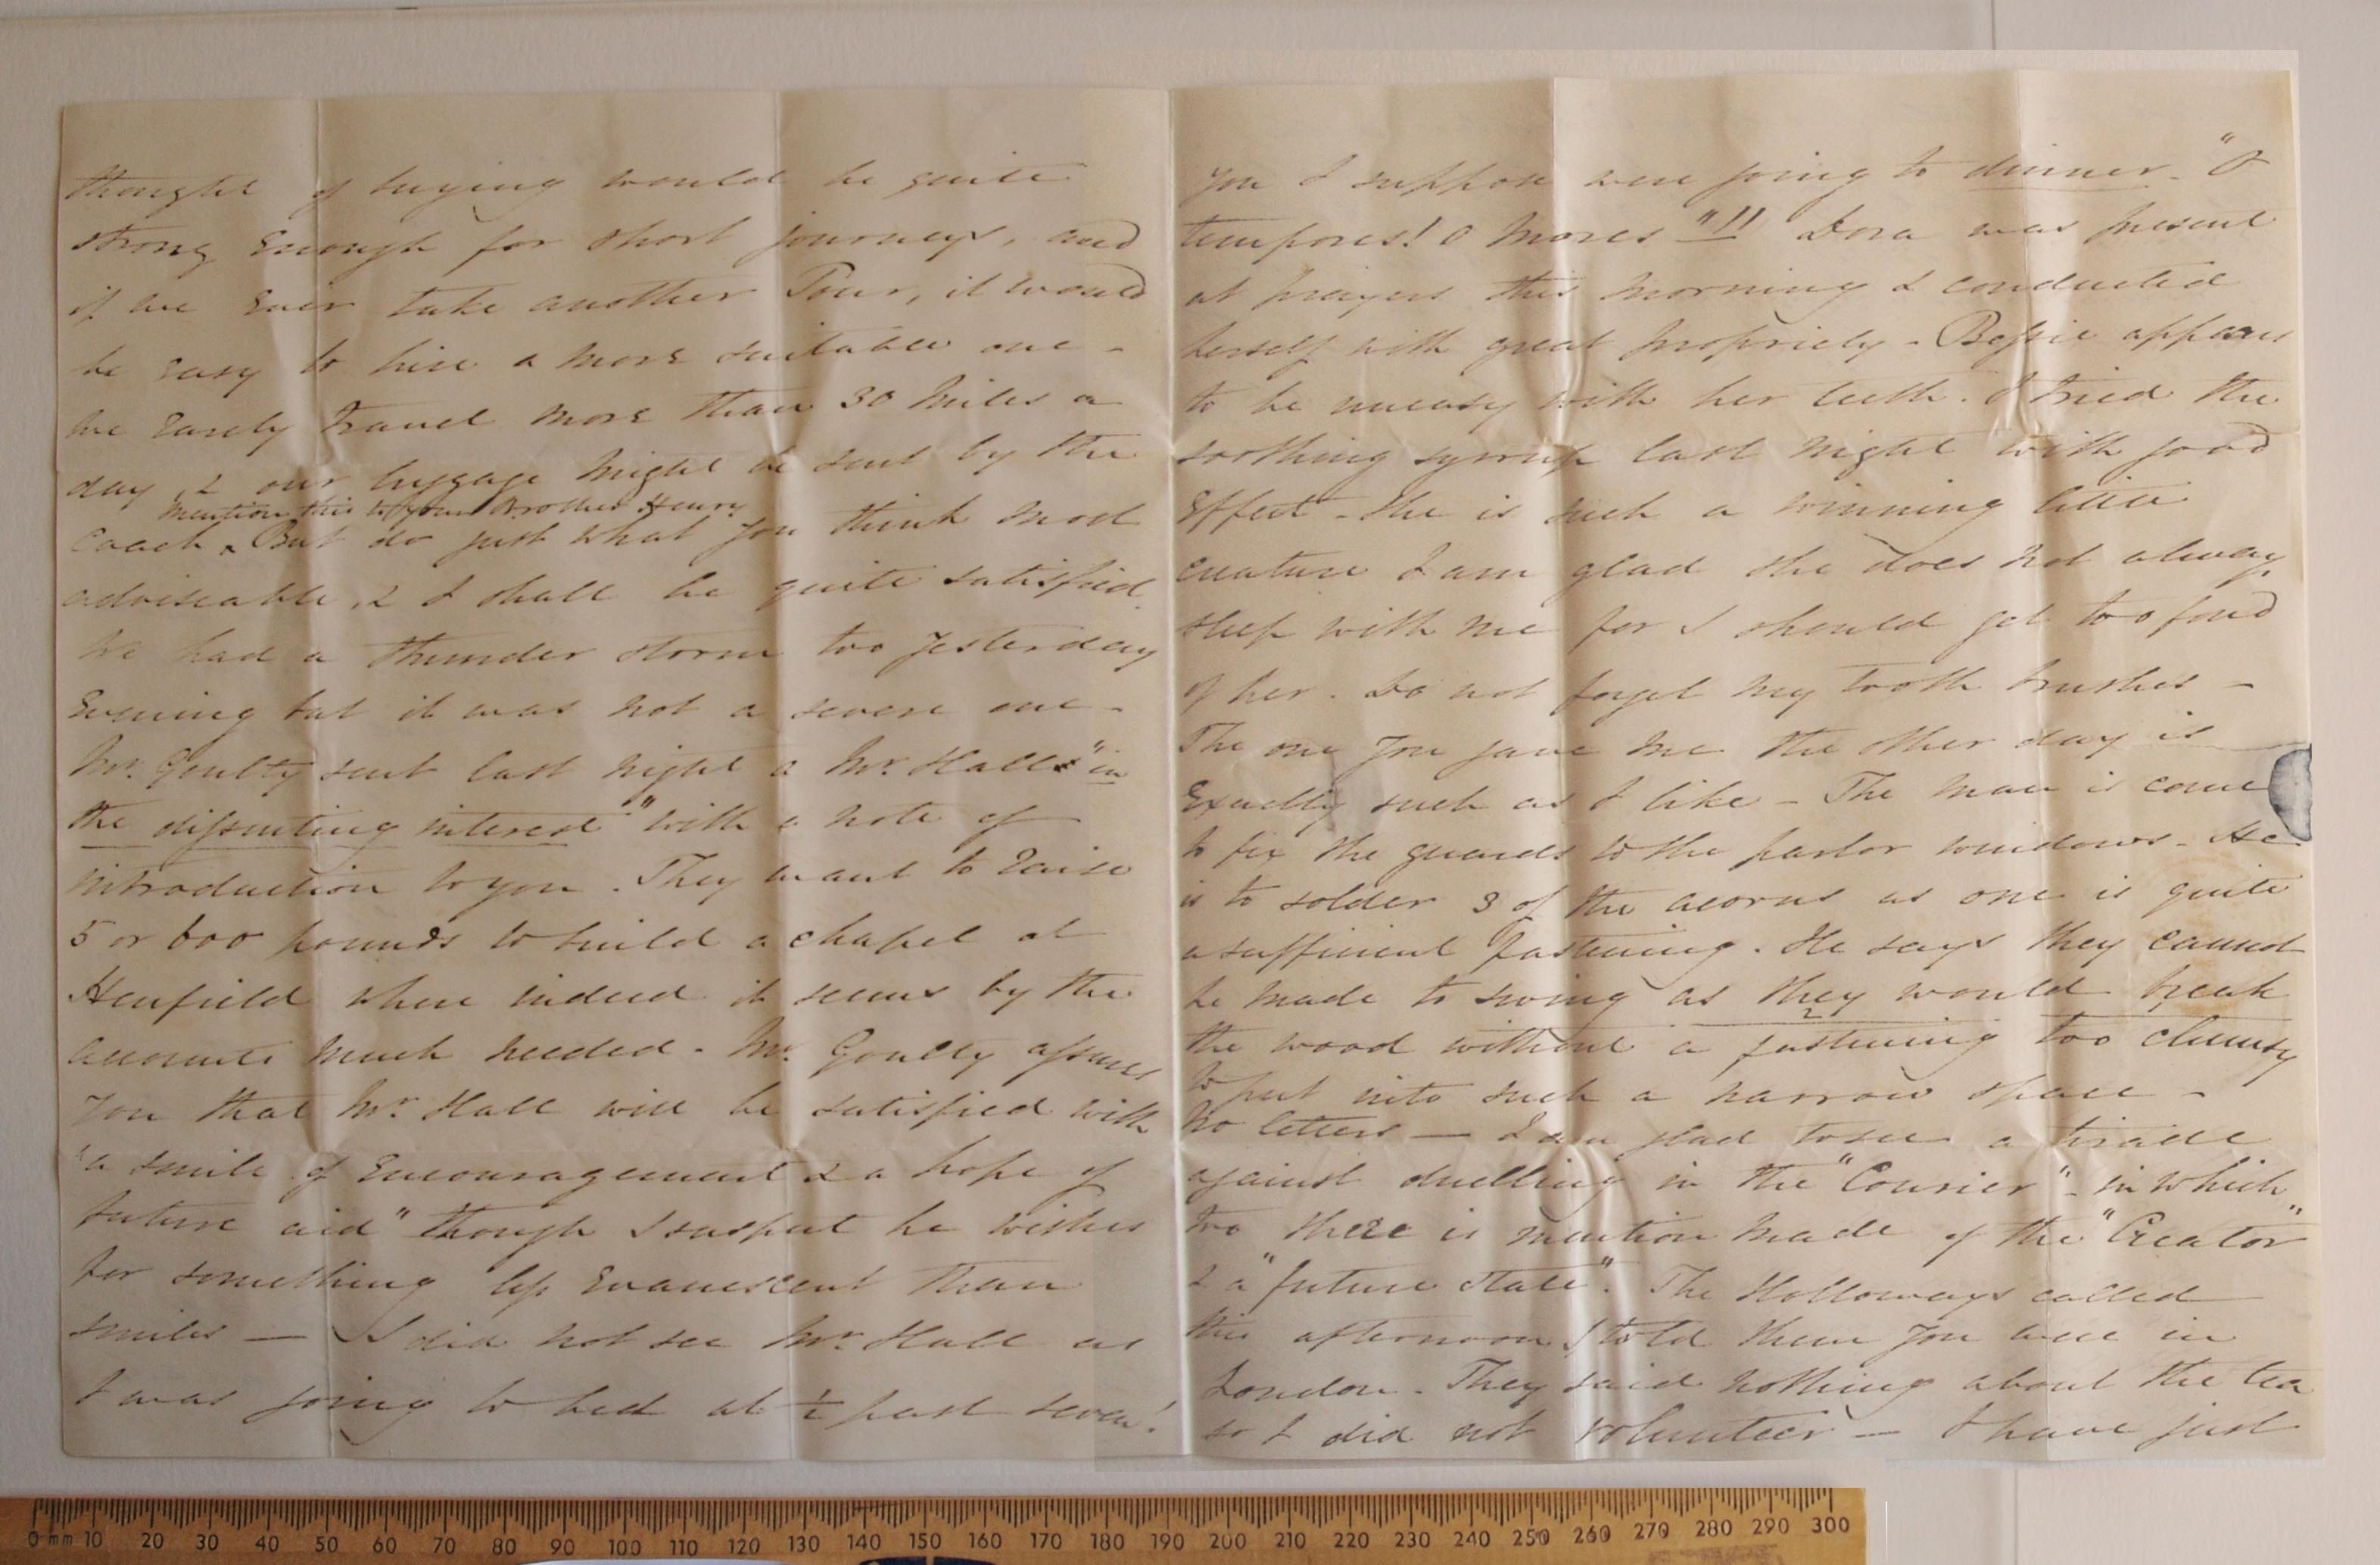 thought of buying would be quite
strong enough for short journeys, and
if we ever take another Tour, it would
be easy to hire a more suitable one -
we rarely travel more than 30 miles a
day, & our luggage might be sent by the
mention this to your Brother Henry
coach ^ But do just what you think most
adviseable, & I shall be quite satisfied
We had a thunder storm too yesterday
Evening but it was not a severe one -
Mr. Goulty sent last night a Mr. Hall "in
the dissenting interest" with a note of
introduction to you. They want to raise
5 or 600 pounds to build a chapel at
Henfield where indeed it seems by the
accounts much needed. Mr. Goulty assures
you that Mr. Hall will be satisfied with
"a smile of Encouragement & a hope of
future aid" though I suspect he wishes
for something less Evanescent than
smiles — I did not see Mr. Hall as
I was going to bed at ½ past seven!
you I suppose were going to dinner - "O
tempores! O mores"!! Dora was present
at prayers this morning & conducted
herself with great propriety - Bessie appears
to be uneasy with her teeth. I tried the
soothing syrrup last night with good
Effect - She is such a winning little
creature I am glad she does not always
sleep with me for I should get too fond
of her. Do not forget my tooth brushes -
The one you gave me the other day is
Exactly such as I like - The man is come
to fix the guards to the parlor windows - He
is to solder 3 of the acorns as one is quite
a sufficient fastening. He says they cannot
be made to swing as they would break
the wood without a fastening too clumsy
to put into such a narrow space -
No letters — I am glad to see a tirade
against duelling in the "Courier" - in which
too there is mention made of the "Creator"
& a "future state". The Holloways called
this afternoon I told them you were in
London. They said nothing about the tea
so I did not volunteer — I have just
0 mm 10 20 30 40 50 60 70 80 90 100 110 120 130 140 150 160 170 180 190 200 210 220 230 240 250 260 270 280 290 300